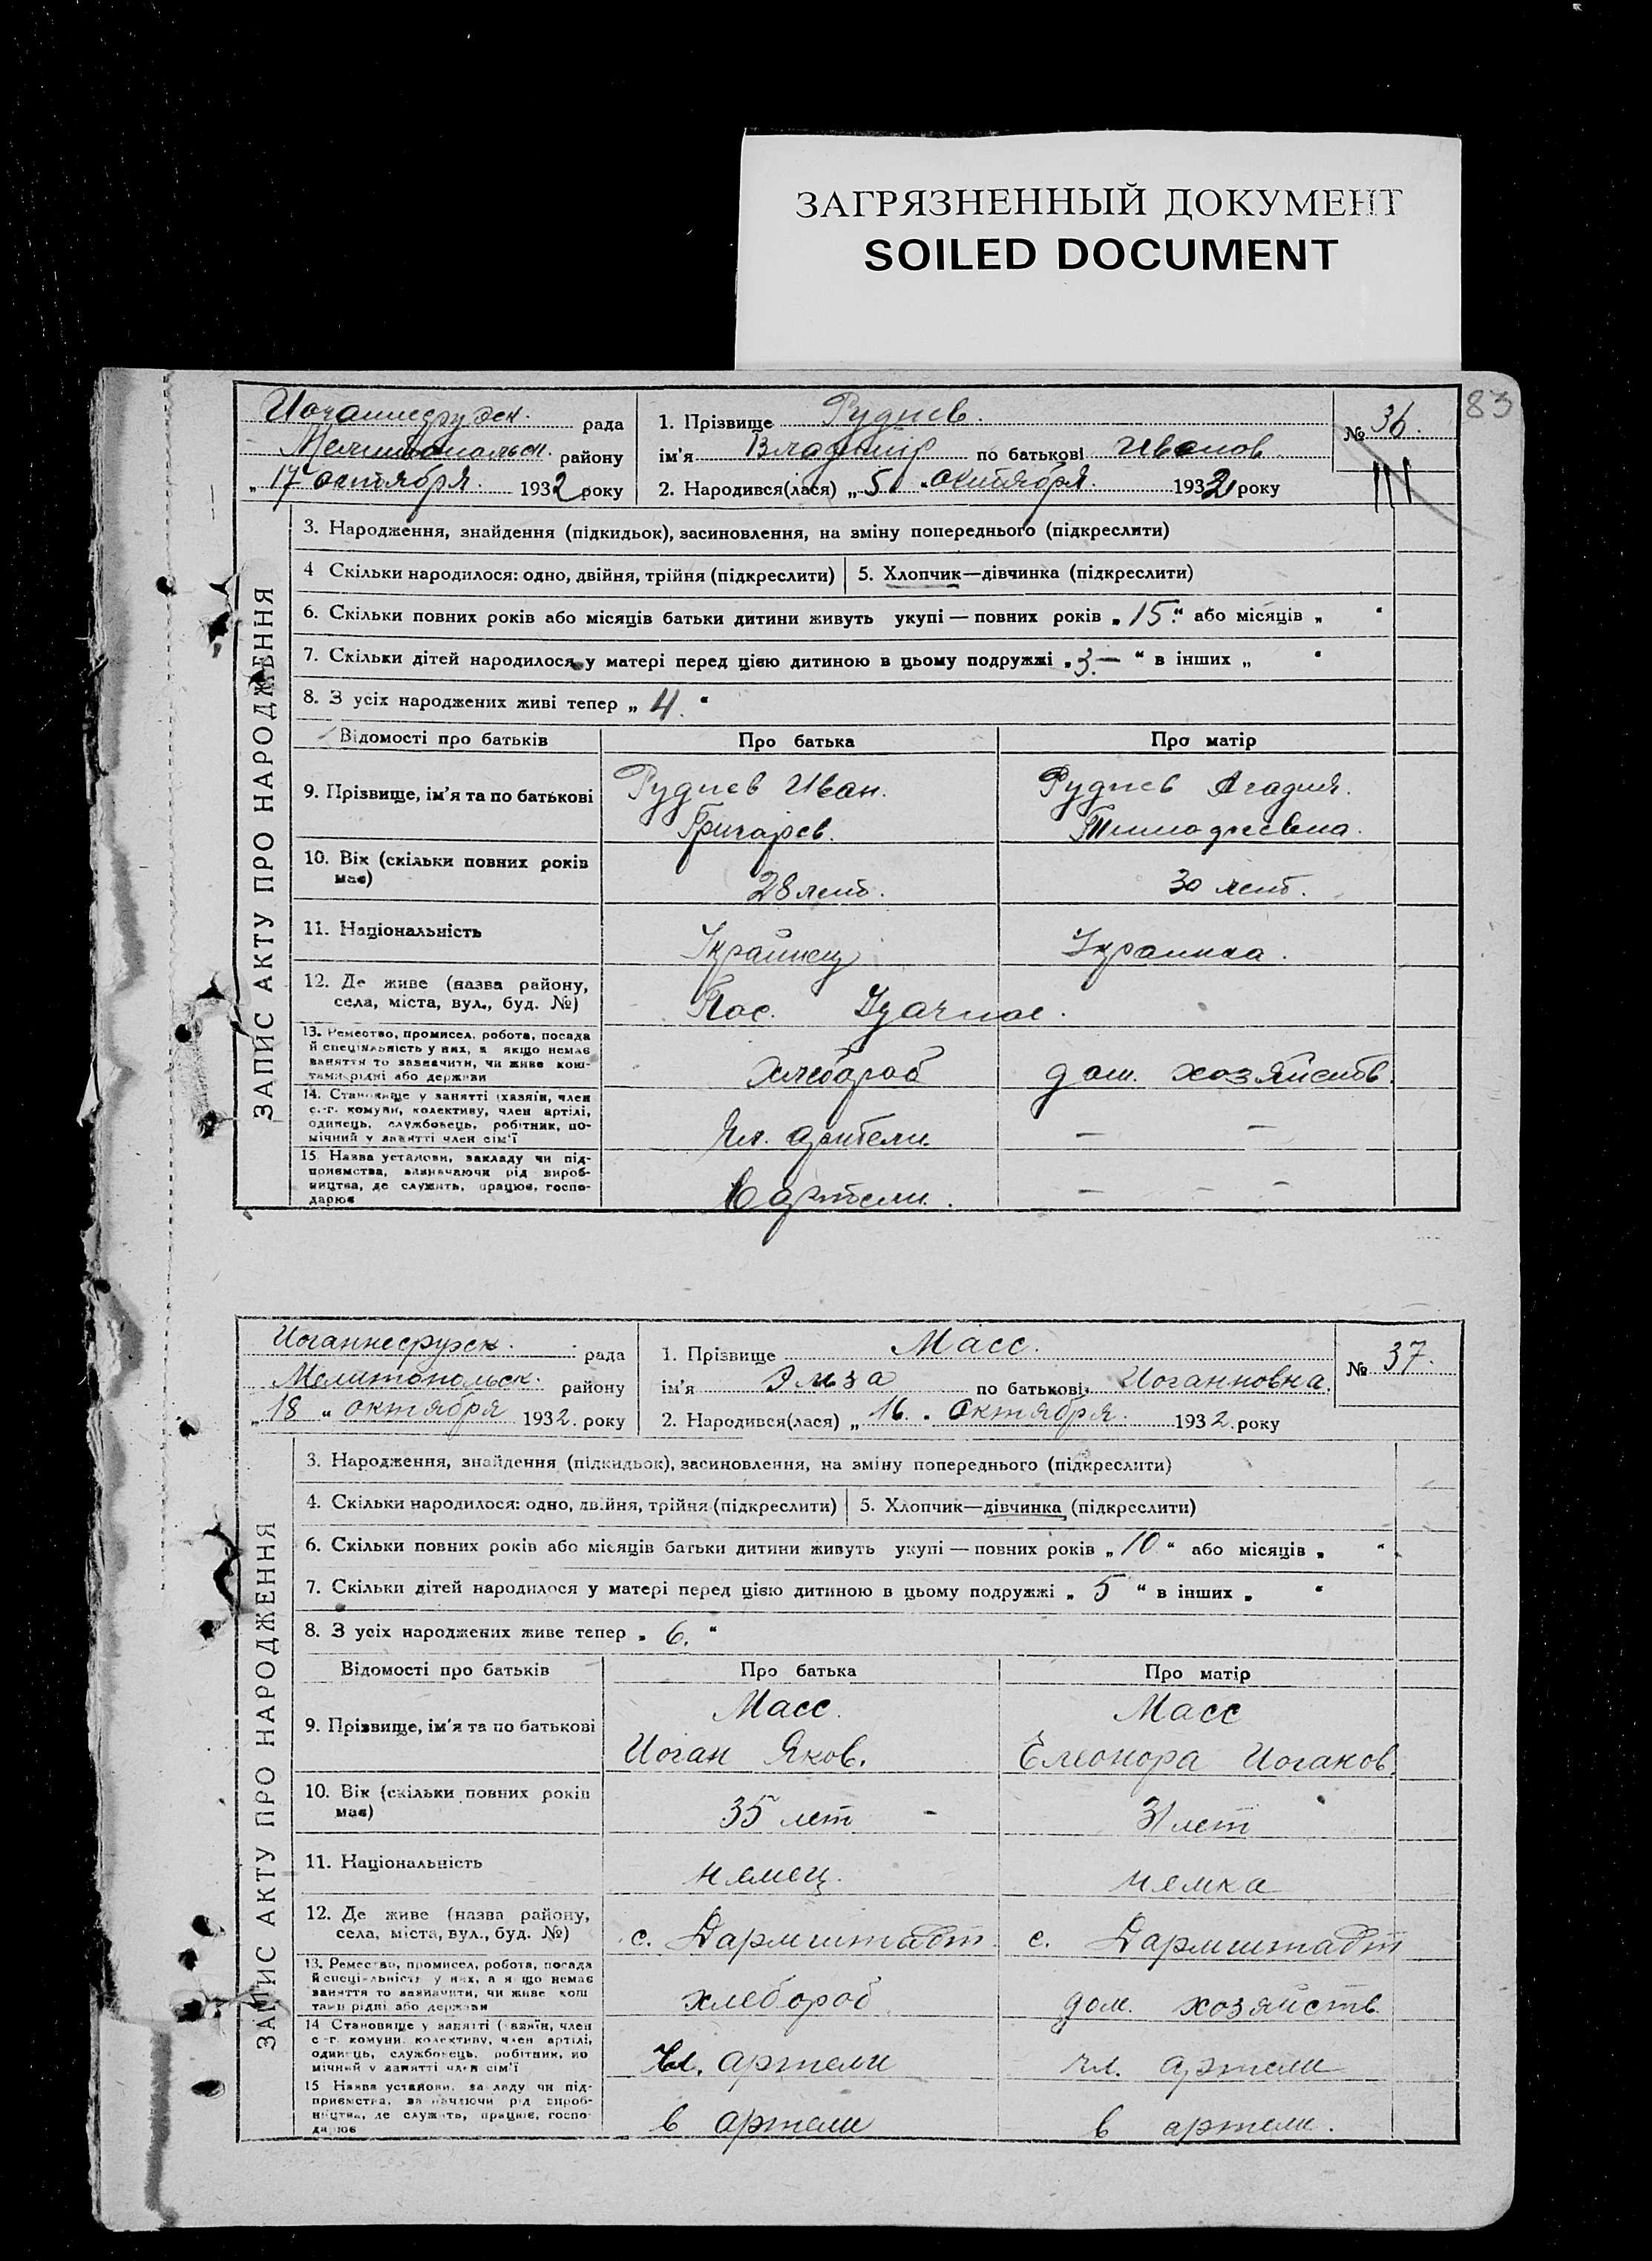 ЗАГРЯЗНЕННЫЙ ДОКУМЕНТ
SOILED DOCUMENT
83
ЗАПИС АКТУ ПРО НАРОДЖЕННЯ
рада
Мелитопольск. району
„17 октября 1932 року
1. Прізвище Руднев.
ім'я Владимир по батькові Иванов
2. Народився(лася) „5" октября 1932 року
№ 36.
3. Народження, знайдення (підкидьок), засиновлення, на зміну попереднього (підкреслити)
4 Скільки народилося: одно, двійня, трійня (підкреслити) 5. Хлопчик—дівчинка (підкреслити)
6. Скільки повних років або місяців батьки дитини живуть укупі — повних років „15." або місяців „ "
7. Скільки дітей народилося у матері перед цією дитиною в цьому подружжі „3.— " в інших „ "
8. З усіх народжених живі тепер „ 4. "
Відомості про батьків Про батька Про матір
9. Прізвище, ім'я та по батькові
Руднев Иван.
Григорев.
Руднев
10. Вік (скільки повних років має)
28 лет.
30 лет.
11. Національність
Украинец
Украинка.
12. Де живе (назва району, села, міста, вул., буд. №)
Пос. Удачное.
13. Ремество, промисел, робота, посада
й спеціяльність у них, а якщо немає
заняття то зазначити, чи живе кош-
тами рідні або держави
хлебороб
дом. хозяйств.
14. Становище у занятті (хазяїн, член
с.-г. комуни, колективу, член артілі,
одинець, службовець, робітник, по-
мічний у занятті член сім'ї
Чл. артели.
— —
15. Назва установи, закладу чи під-
приємства, зазначаючи рід вироб-
ництва, де служить, працює, госпо-
дарює
В артели.
— — —
ЗАПИС АКТУ ПРО НАРОДЖЕННЯ
Иоганнесруэск. рада
Мелитопольск. району
„18" октября 1932. року
1. Прізвище Масс.
ім'я Элза по батькові Иоганновна.
2. Народився(лася) „16. " Октября. 1932. року
№ 37.
3. Народження, знайдення (підкидьок), засиновлення, на зміну попереднього (підкреслити)
4. Скільки народилося: одно, двійня, трійня (підкреслити) 5. Хлопчик—дівчинка (підкреслити)
6. Скільки повних років або місяців батьки дитини живуть укупі — повних років „10" або місяців „ "
7. Скільки дітей народилося у матері перед цією дитиною в цьому подружжі „ 5 " в інших „ "
8. З усіх народжених живе тепер „ 6. "
Відомості про батьків Про батька Про матір
9. Прізвище, ім'я та по батькові
Масс.
Иоган Яков.
Масс
Елеонора Иоганов.
10. Вік (скільки повних років має)
35 лет
31 лет
11. Національність
немец.
немка
12. Де живе (назва району, села, міста, вул., буд. №)
с. Дармштадт
с. Дармштадт
13. Ремество, промисел, робота, посада
й спеціяльність у них, а якщо немає
заняття то зазначити, чи живе кош
тами рідні або держави
хлебороб
дом. хозяйств.
14 Становище у занятті (хазяїн, член
с-г. комуни, колективу, член артілі,
одинець, службовець, робітник, по
мічний у занятті член сім'ї
Чл. артели
чл. артели
15 Назва установи, закладу чи під-
приємства, зазначаючи рід вироб-
ництва, де служить, працює, госпо-
дарює
в артели
в артели.